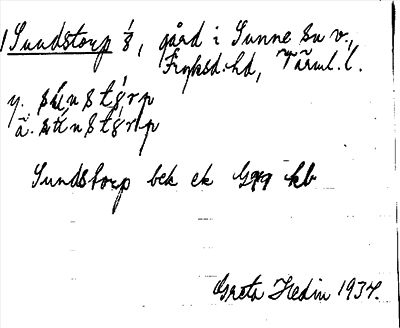 1 Sundstorp 1/8, gård i Sunne sn v.,
Fryksd. hd, Värml. l.
y. sún stǫrp
ä. sún stǫrp
Sundstorp bek ek kb
Greta Hedin 1934.